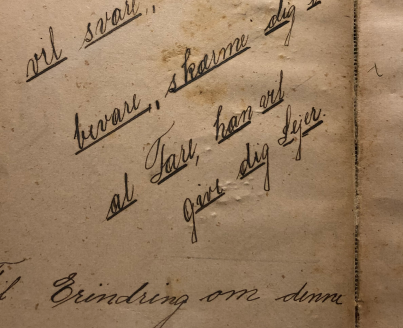 vil svare,
bevare, skærme dig
al Fare, han vil
give dig Sejer.
Erindring om denne